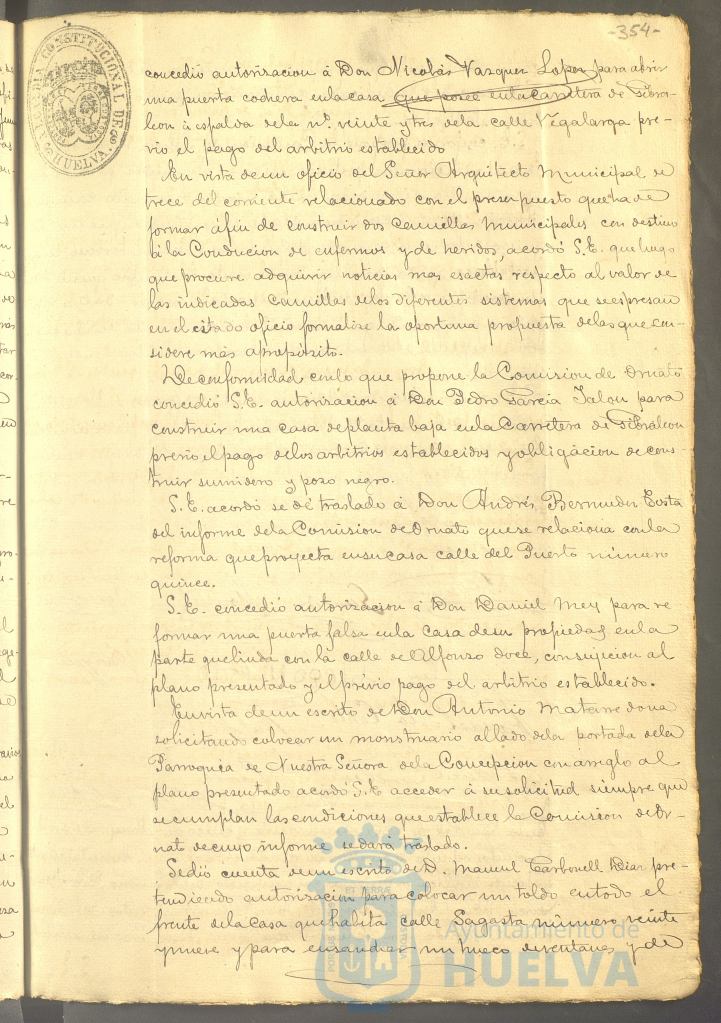 -354-
concedió autorizacion á Don Nicolás Vazquez Lopez para abrir
una puerta cochera en la casa que posee en la Carretera de Gibra-
leon á espalda de la nº veinte y tres de la calle Vegalarga pre-
vio el pago del arbitrio establecido
En vista de un oficio del Señor Arquitecto Municipal de
trece del corriente relacionado con el presupuesto que ha de
formar á fin de construir dos camillas municipales con destino
á la Conducion de enfermos y de heridos, acordó S.E. que luego
que procure adquirir noticias mas esactas respecto al valor de
las indicadas Camillas de los diferentes sistemas que se espresan
en el citado oficio formalize la oportuna propuesta de las que con-
sidere más apropósito.
De conformidad con lo que propone la Comision de Ornato
concedió S.E. autorizacion á Don Pedro Garcia Jalon para
construir una casa de planta baja en la Carretera de Gibraleon
previo el pago de los arbitrios establecidos y obligacion de cons-
truir sumidero y pozo negro.
S.E. acordó se dé traslado á Don Andrés Bermudez
del informe de la Comision de Ornato que se relaciona con la
reforma que proyecta en su casa calle del Puerto número
quince.
S.E. concedió autorizacion á Don Daniel Mey para re
formar una puerta falsa en la casa de su propiedad en la
parte que linda con la calle de Alfonso doce, con sujecion al
plano presentado y el prévio pago del arbitrio establecido.
En vista de un escrito de Don Antonio Matarredona
solicitando colocar un monstruario al lado de la portada de la
Parroquia de Nuestra Señora de la Concepcion con arreglo al
plano presentado acordó S.E acceder á su solicitud siempre que
se cumplan las condiciones que establece la Comision de Or-
nato de cuyo informe se dará traslado.
Se dió cuenta de un escrito de D. Manuel Carbonell Diaz pre-
tendiendo autorizacion para colocar un toldo en todo el
frente de la casa que habita calle Sagasta número veinte
y nueve y para ensanchar un hueco de ventana y de
CONSTITUCIONAL DE
HUELVA.
Ayuntamiento de
HUELVA